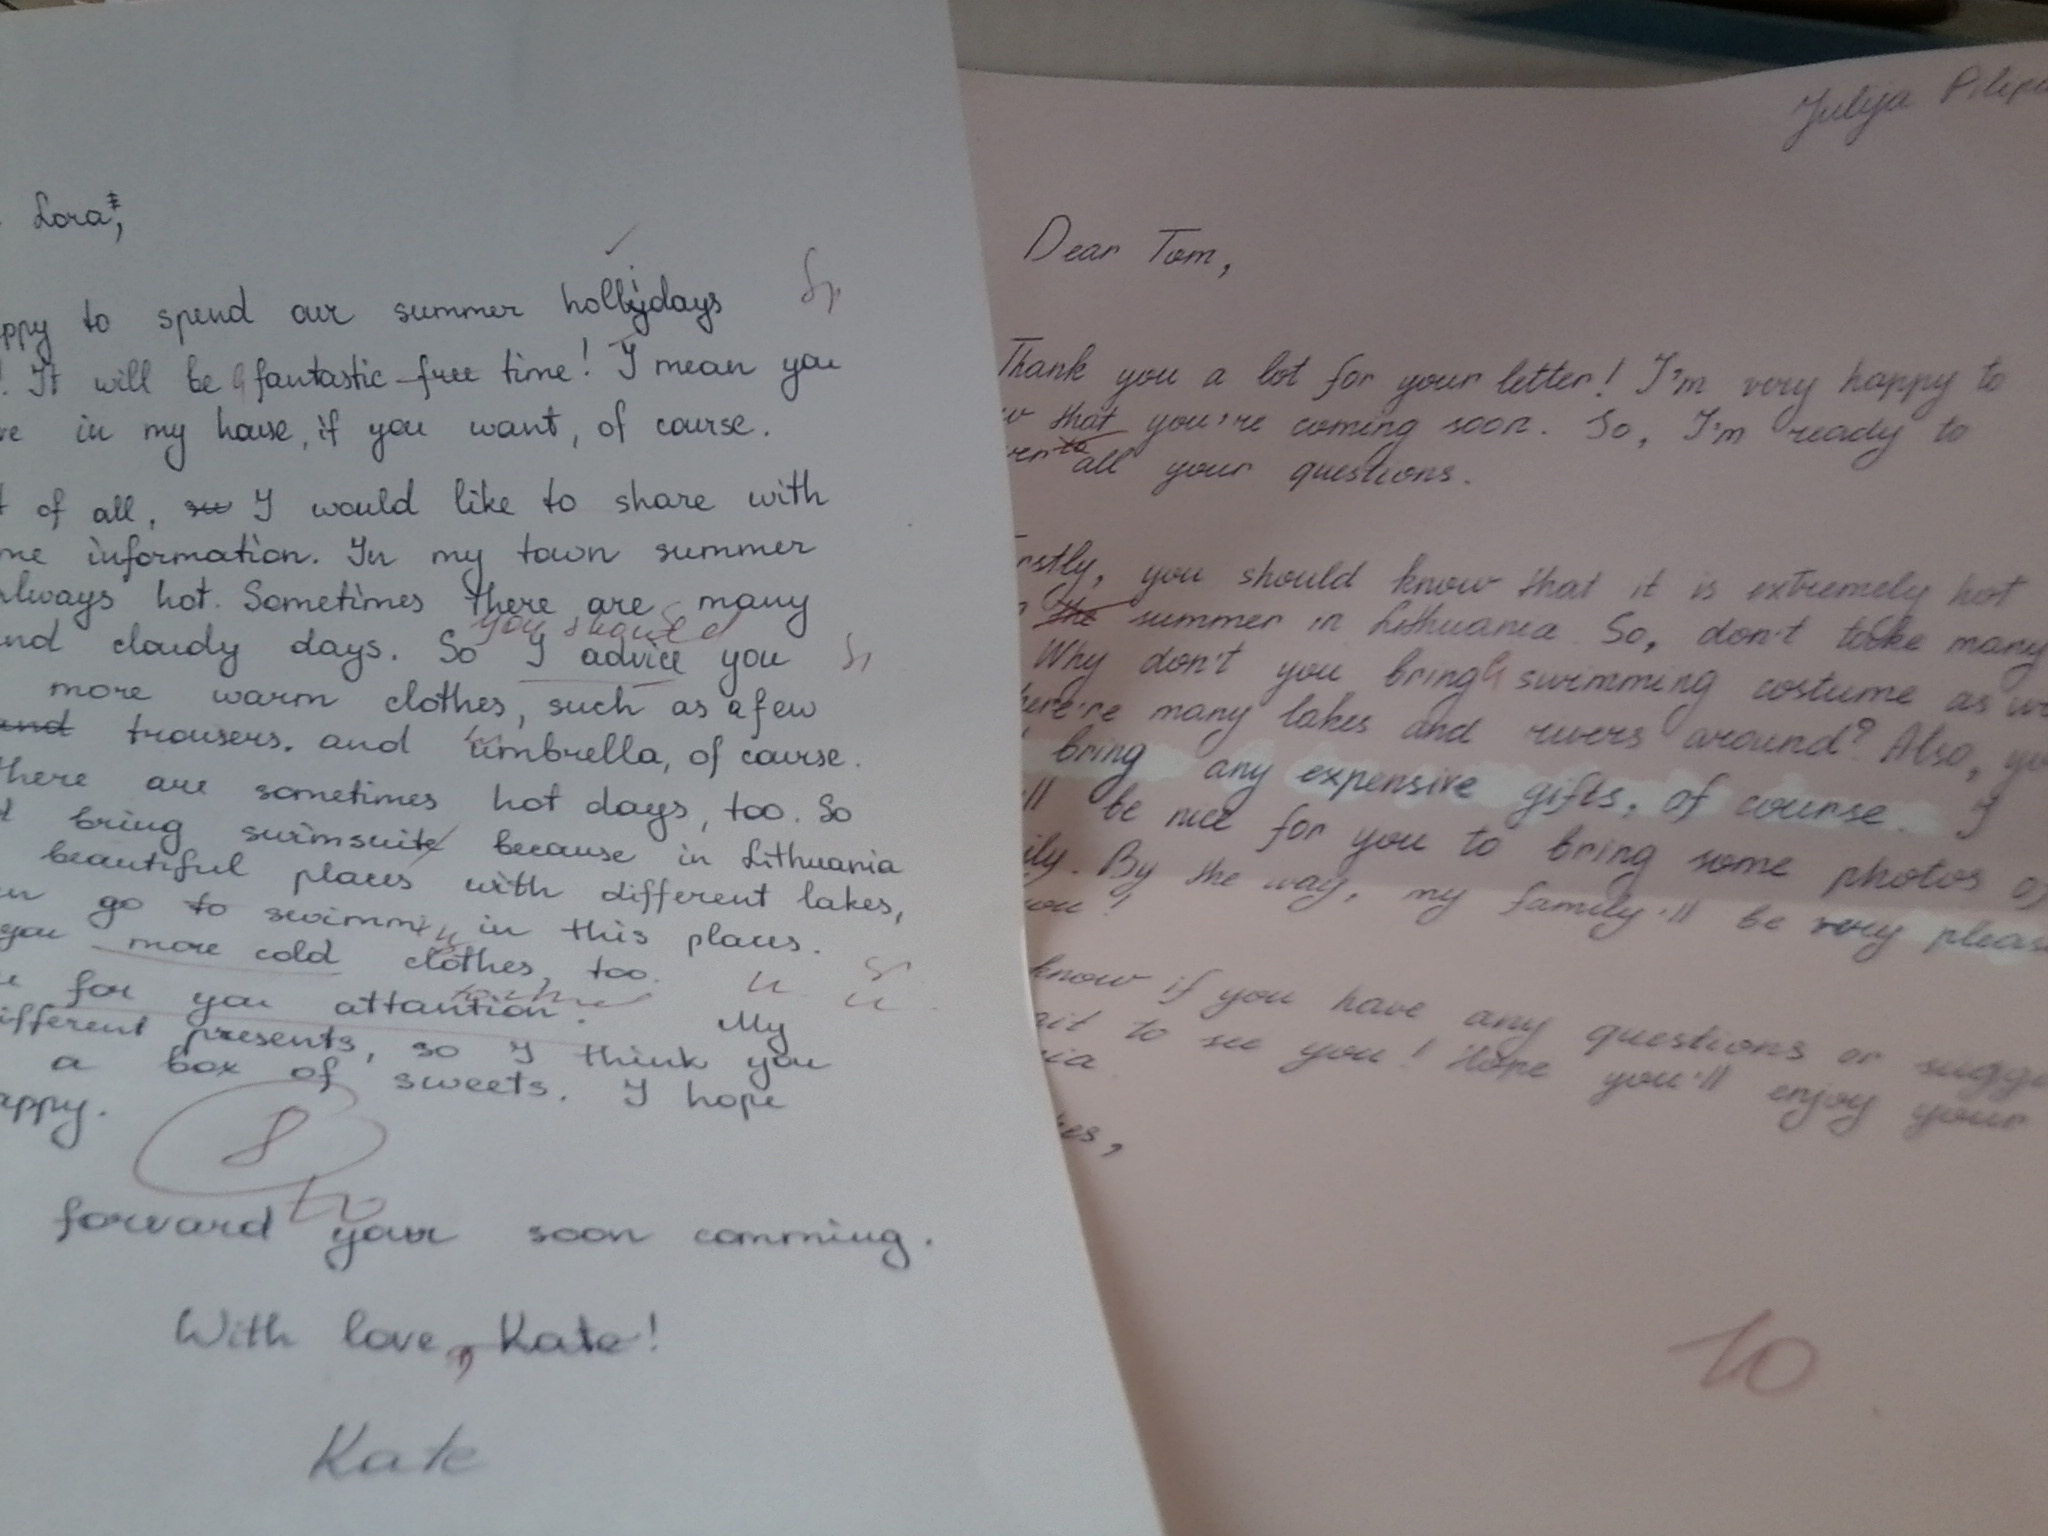 Lora,
ppy to spend our summer hollydays Sp
! It will be a fantastic free time! I mean you
ve in my house, if you want, of course.
t of all, I would like to share with
me information. In my town summer
lways hot. Sometimes there are many
you should
nd cloudy days. So I advice you
more warm clothes, such as a few
and trousers. and umbrella, of course.
there are sometimes hot days, too. So
d bring swimsuite because in Lithuania
beautiful places with different lakes,
go to swimming in this places.
you more cold clothes, too.
for you attantion. My
ifferent presents, so I think you
a box of sweets. I hope
appy.
8
to
forward your soon comming.
With love, Kate!
Kate
Julija
Dear Tom,
Thank you a lot for your letter! I'm very happy to
w that you're coming soon. So, I'm ready to
wer to all your questions.
rstly, you should know that it is extremely hot
the summer in Lithuania. So, don't take many
Why don't you bring a swimming costume as we
here're many lakes and rivers around? Also, yo
bring any expensive gifts, of course. I
'll be nice for you to bring some photos of
ily. By the way, my family'll be very pleas
you!
know if you have any questions or sugge
ait to see you! Hope you'll enjoy your
ia.
hes,
10